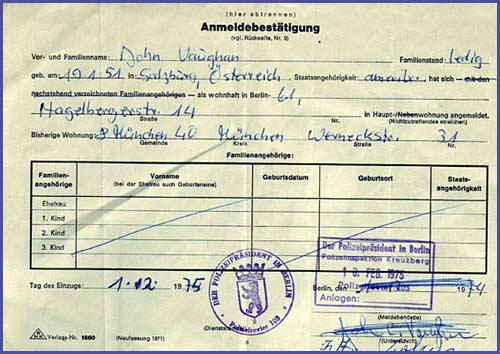 (hier abtrennen)
Anmeldebestätigung
(vgl. Rückseite, Nr. 9)
Vor- und Familienname: John Vaughan Familienstand: ledig
geb. am 19.1.51 in Salzburg, Österreich. Staatsangehörigkeit: amerik., hat sich – mit den
nachstehend verzeichneten Familienangehörigen – als wohnhaft in Berlin- 61,
Hagelbergerstr. 14 in Haupt-/Nebenwohnung angemeldet.
Straße Nr. (Nichtzutreffendes streichen)
Bisherige Wohnung: 8 München 40 München Werneckstr. 31
Gemeinde Kreis Straße Nr.
Familienangehörige:
Familien-angehörige Vorname Geburtsdatum Geburtsort Staats-angehörigkeit
(bei der Ehefrau auch Geburtsname)
Ehefrau
1. Kind
2. Kind
3. Kind
Der Polizeipräsident in Berlin
Polizeiinspektion Kreuzberg
18. FEB. 1975
Anlagen:
DER POLIZEIPRÄSIDENT IN BERLIN
Polizeirevier 103
Tag des Einzugs: 1.12. 1975 Berlin, den 1974
(Meldebehörde)
(Dienststelle
(Unterschrift)
Verlags-Nr. 1660 (Neufassung 1971) 6